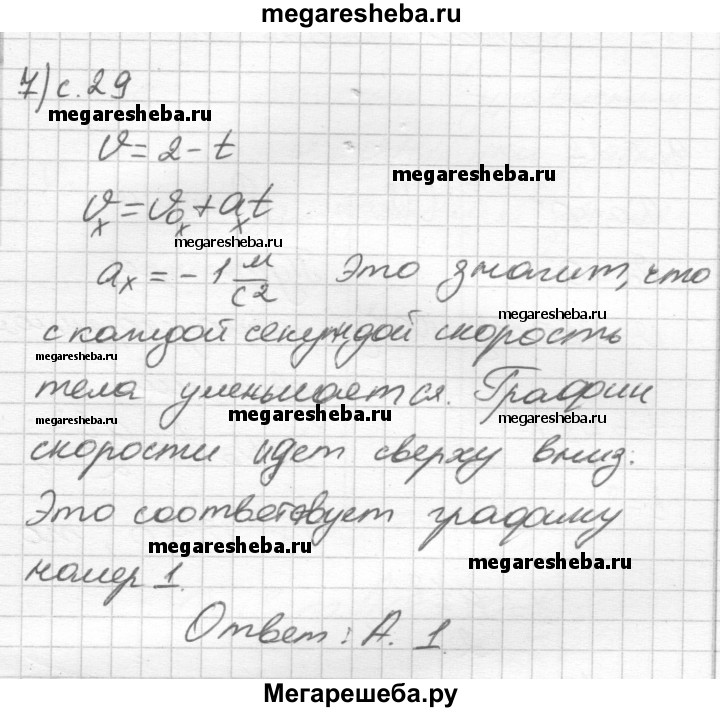 megaresheba.ru
7) с. 29
megaresheba.ru
v = 2 - t
megaresheba.ru
vₓ = v₀ₓ + aₓt
megaresheba.ru
aₓ = - 1 м/с2 Это значит, что
megaresheba.ru
с каждой секундой скорость
megaresheba.ru
тела уменьшается. График
megaresheba.ru megaresheba.ru megaresheba.ru
скорости идет сверху вниз.
Это соответствует графику
megaresheba.ru
номер 1.
megaresheba.ru
Ответ: А. 1.
Мегарешеба.ру